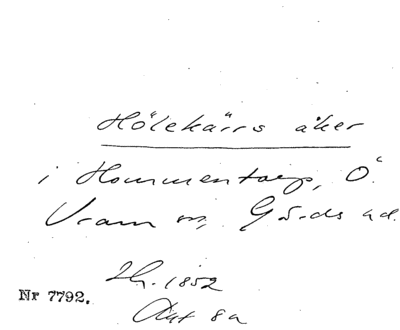 Hölekärrs åker
i Hommentorp, Ö.
Vram sn, Gärds hd.
Lh. 1852
Akt 8a
Nr 7792.